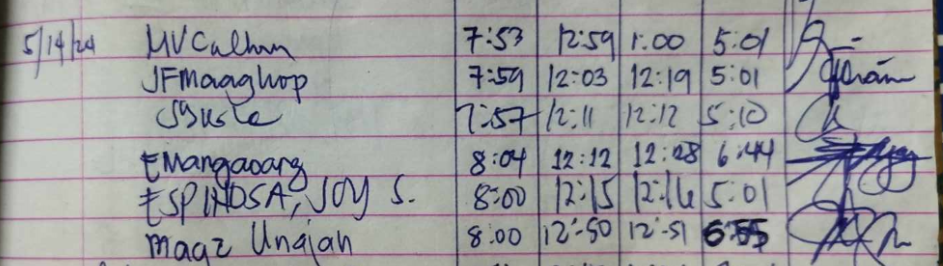 5/14/24 MVCalhun 7:53 12:59 1:00 5:01
JFMaaghop 7:59 12:03 12:19 5:01
7:57 12:11 12:12 5:10
EMangaoang 8:04 12:12 12:28 6:44
ESPINOSA, JOY S. 8:00 12:15 12:16 5:01
Magz Unajan 8:00 12:50 12:51 6:55